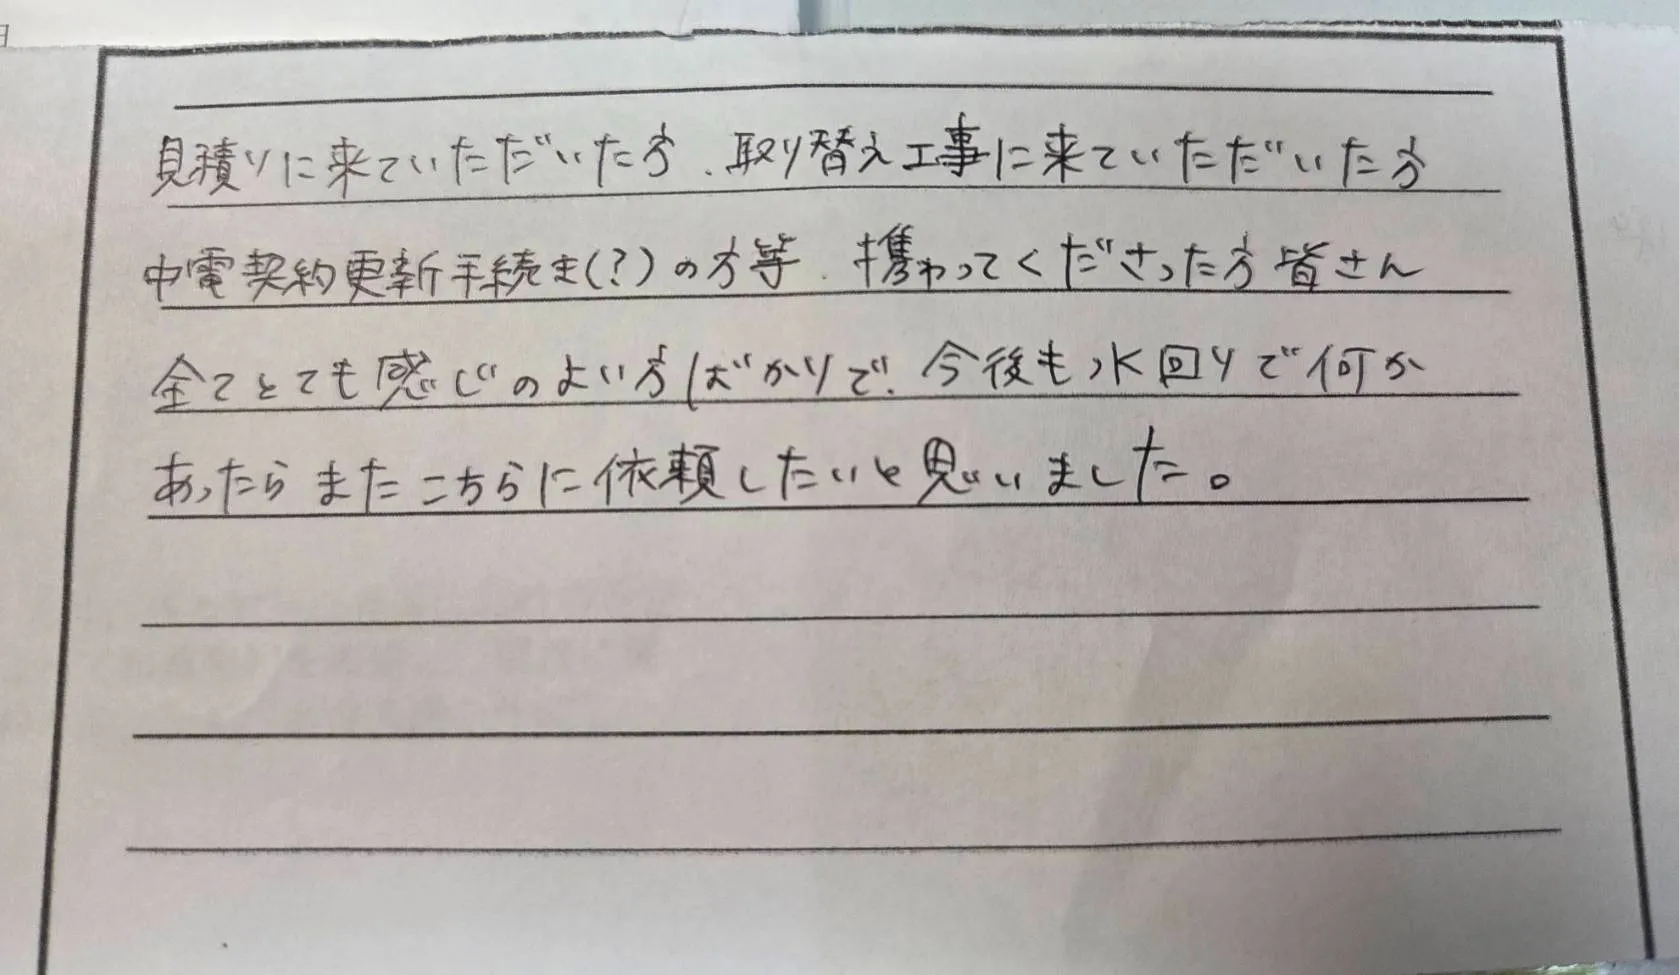 見積りに来ていただいた方、取り替え工事に来ていただいた方
中電契約更新手続き(?)の方等、携わってくださった方皆さん
全てとても感じのよい方ばかりで、今後も水回りで何か
あったらまたこちらに依頼したいと思いました。